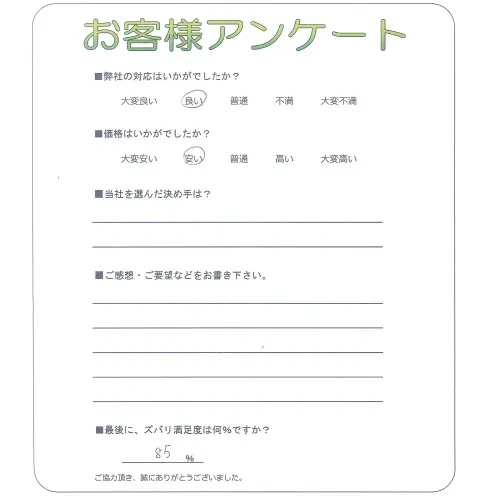 お客様アンケート
■弊社の対応はいかがでしたか？
大変良い　良い　普通　不満　大変不満
■価格はいかがでしたか？
大変安い　安い　普通　高い　大変高い
■当社を選んだ決め手は？
■ご感想・ご要望などをお書き下さい。
■最後に、ズバリ満足度は何%ですか？
85 %
ご協力頂き、誠にありがとうございました。